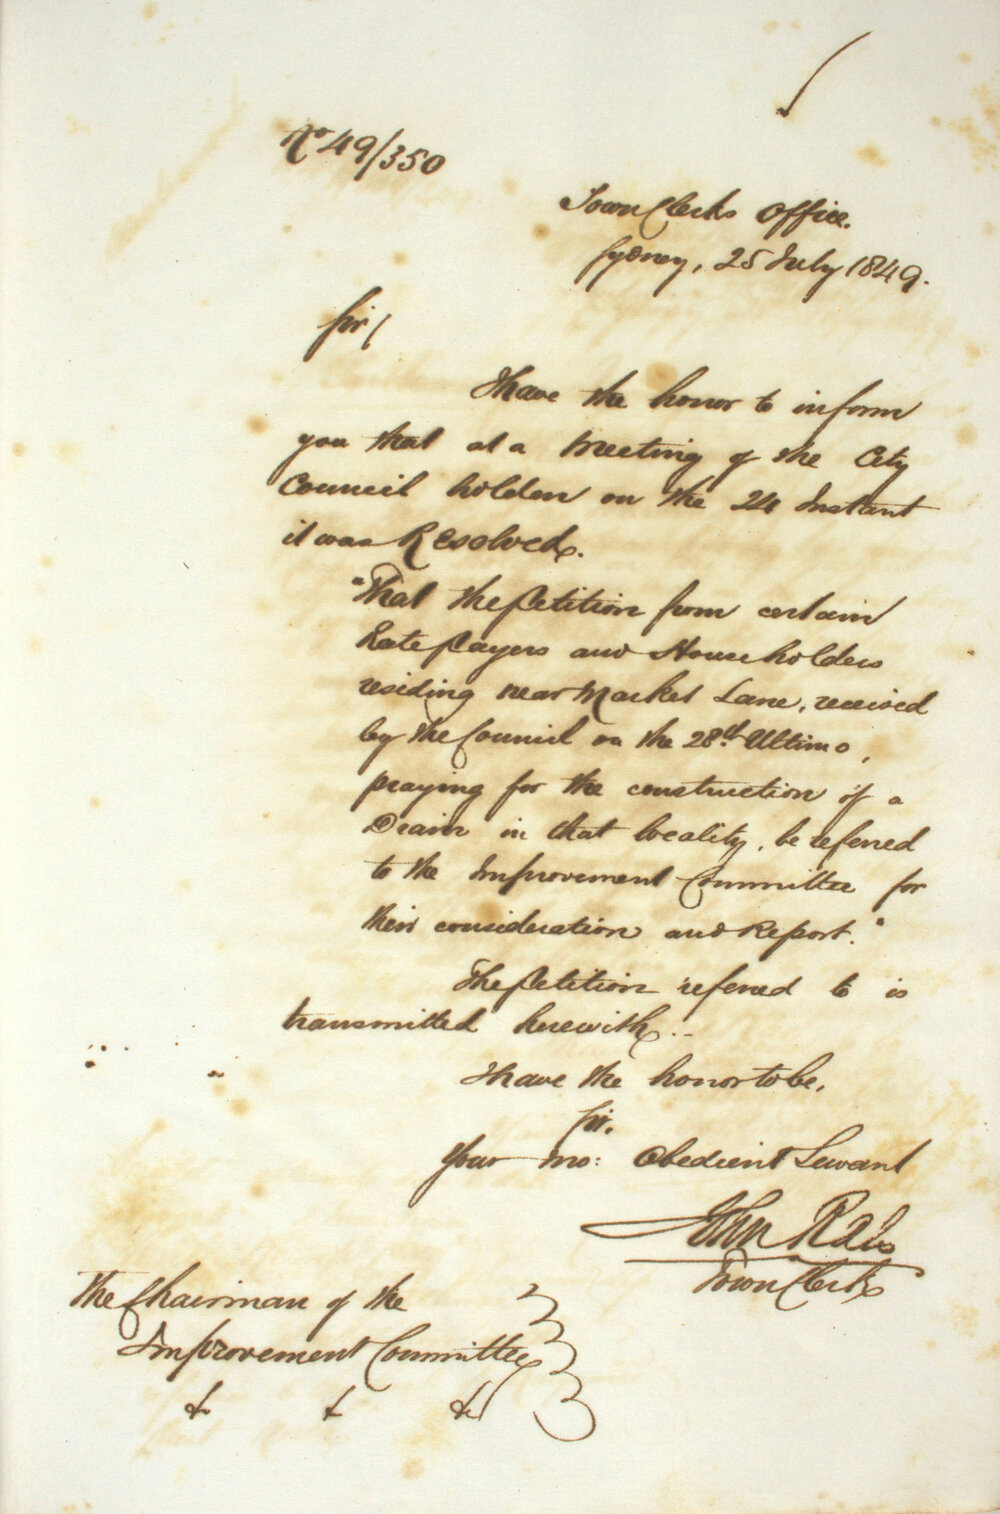 No 49/350
Town Clerks Office.
Sydney, 25 July 1849.
Sir/
I have the honor to inform
you that at a Meeting of the City
Council holden on the 24 Instant
it was Resolved.
"That the Petition from certain
Rate Payers and Householders
residing near Market Lane, received
by the Council on the 28th Ultimo,
praying for the construction of a
Drain in that locality, be referred
to the Improvement Committee for
their consideration and Report."
The Petition referred to is
transmitted herewith..
I have the honor to be,
Sir.
Your mo: Obedient Servant
John Rae
Town Clerk
The Chairman of the
Improvement Committee
& & &